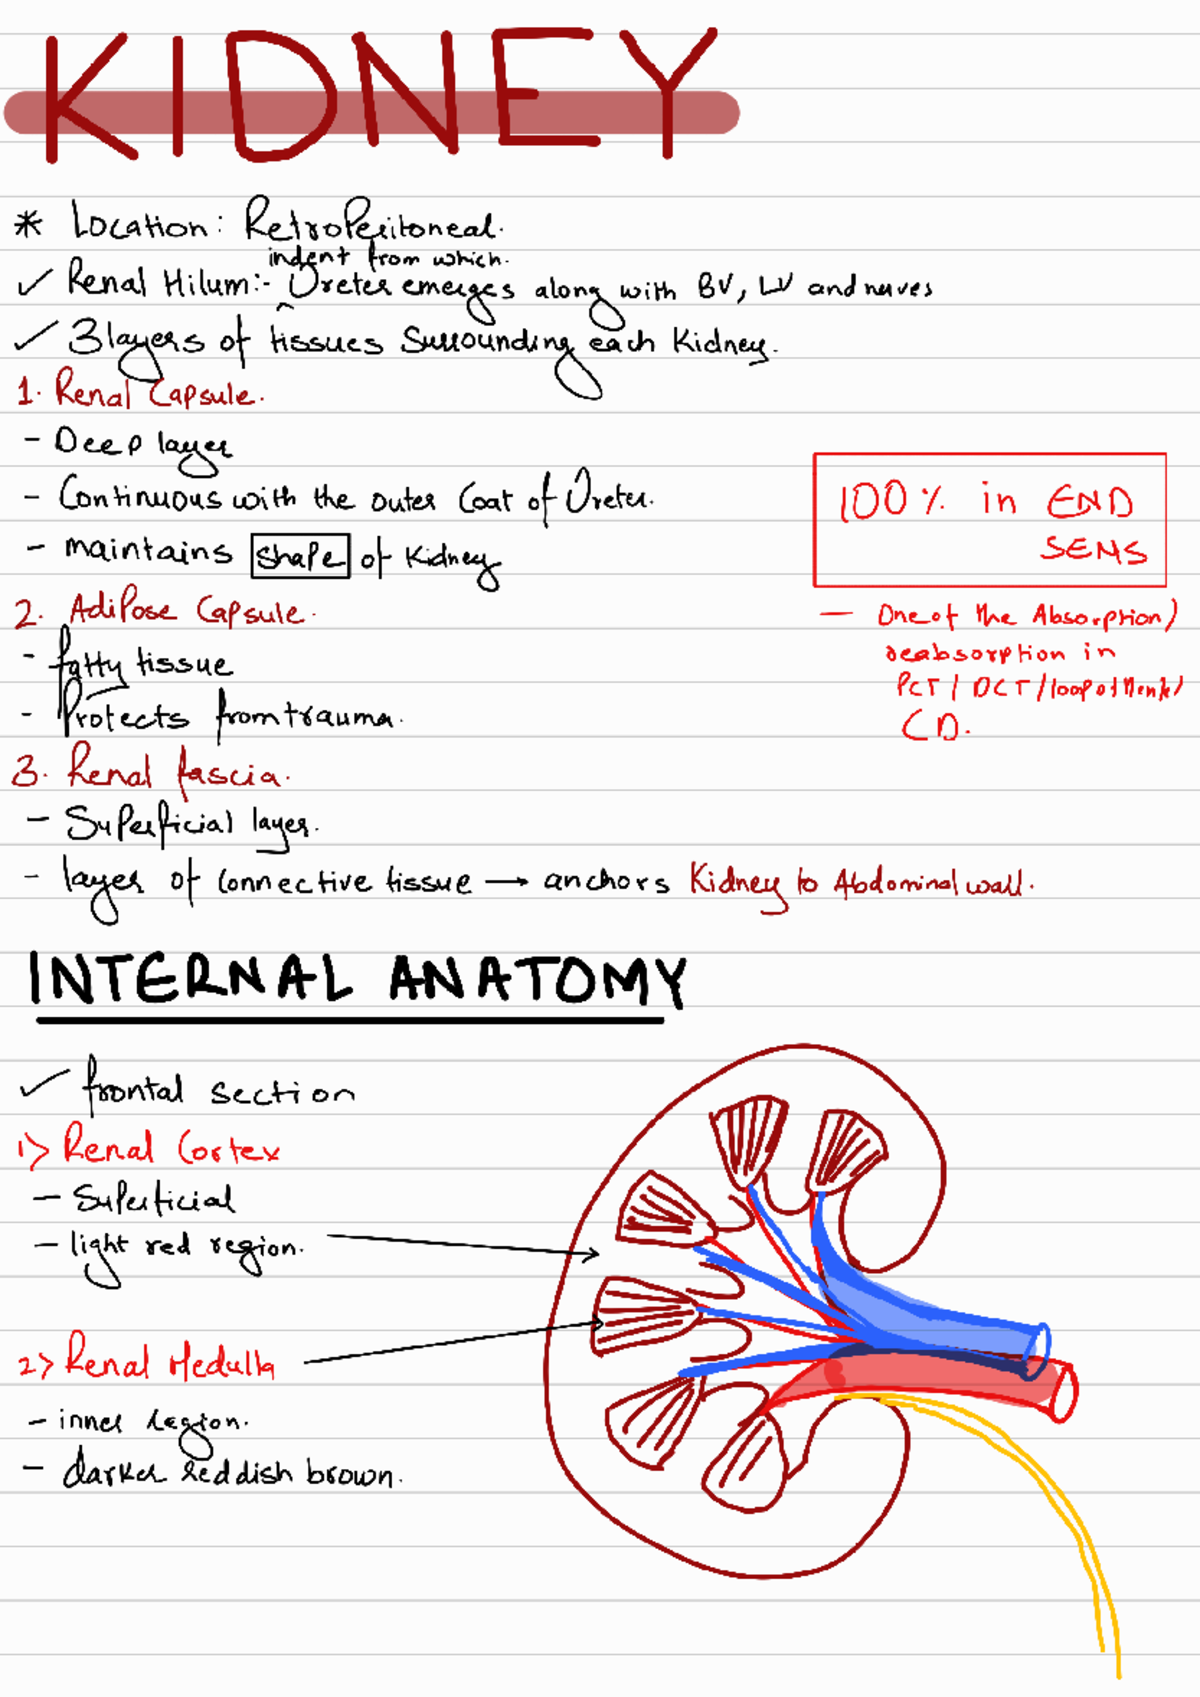 KIDNEY
* Location: RetroPeritoneal.
indent from which.
✓ Renal Hilum:- Ureter emerges along with BV, LV and nerves
✓ 3 layers of tissues Surrounding each Kidney.
1. Renal Capsule.
- Deep layer
- Continuous with the outer Coat of Ureter.
- maintains shape of Kidney
100% in END
SEMS
2. Adipose Capsule.
- One of the Absorption/
reabsorption in
PCT / DCT / loop of Henle/
CD.
- fatty tissue
- Protects from trauma.
3. Renal fascia.
- Superficial layer.
- layer of Connective tissue → anchors Kidney to Abdominal wall.
INTERNAL ANATOMY
✓ frontal section
1> Renal Cortex
- Superficial
- light red region.
2> Renal Medulla
- inner region.
- darker reddish brown.